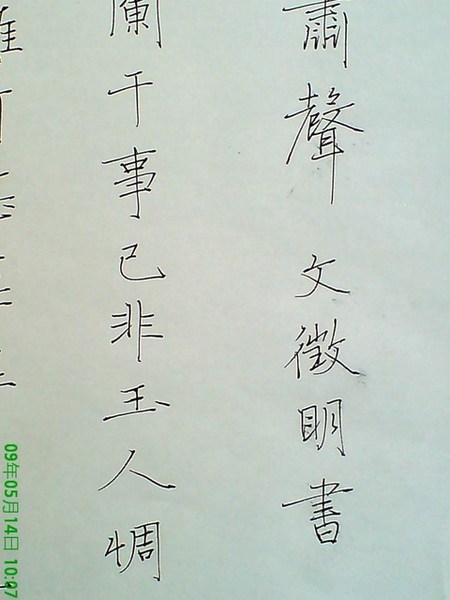 聲 文徵明書
闌干事已非玉人惆
09年05月14日 10:07